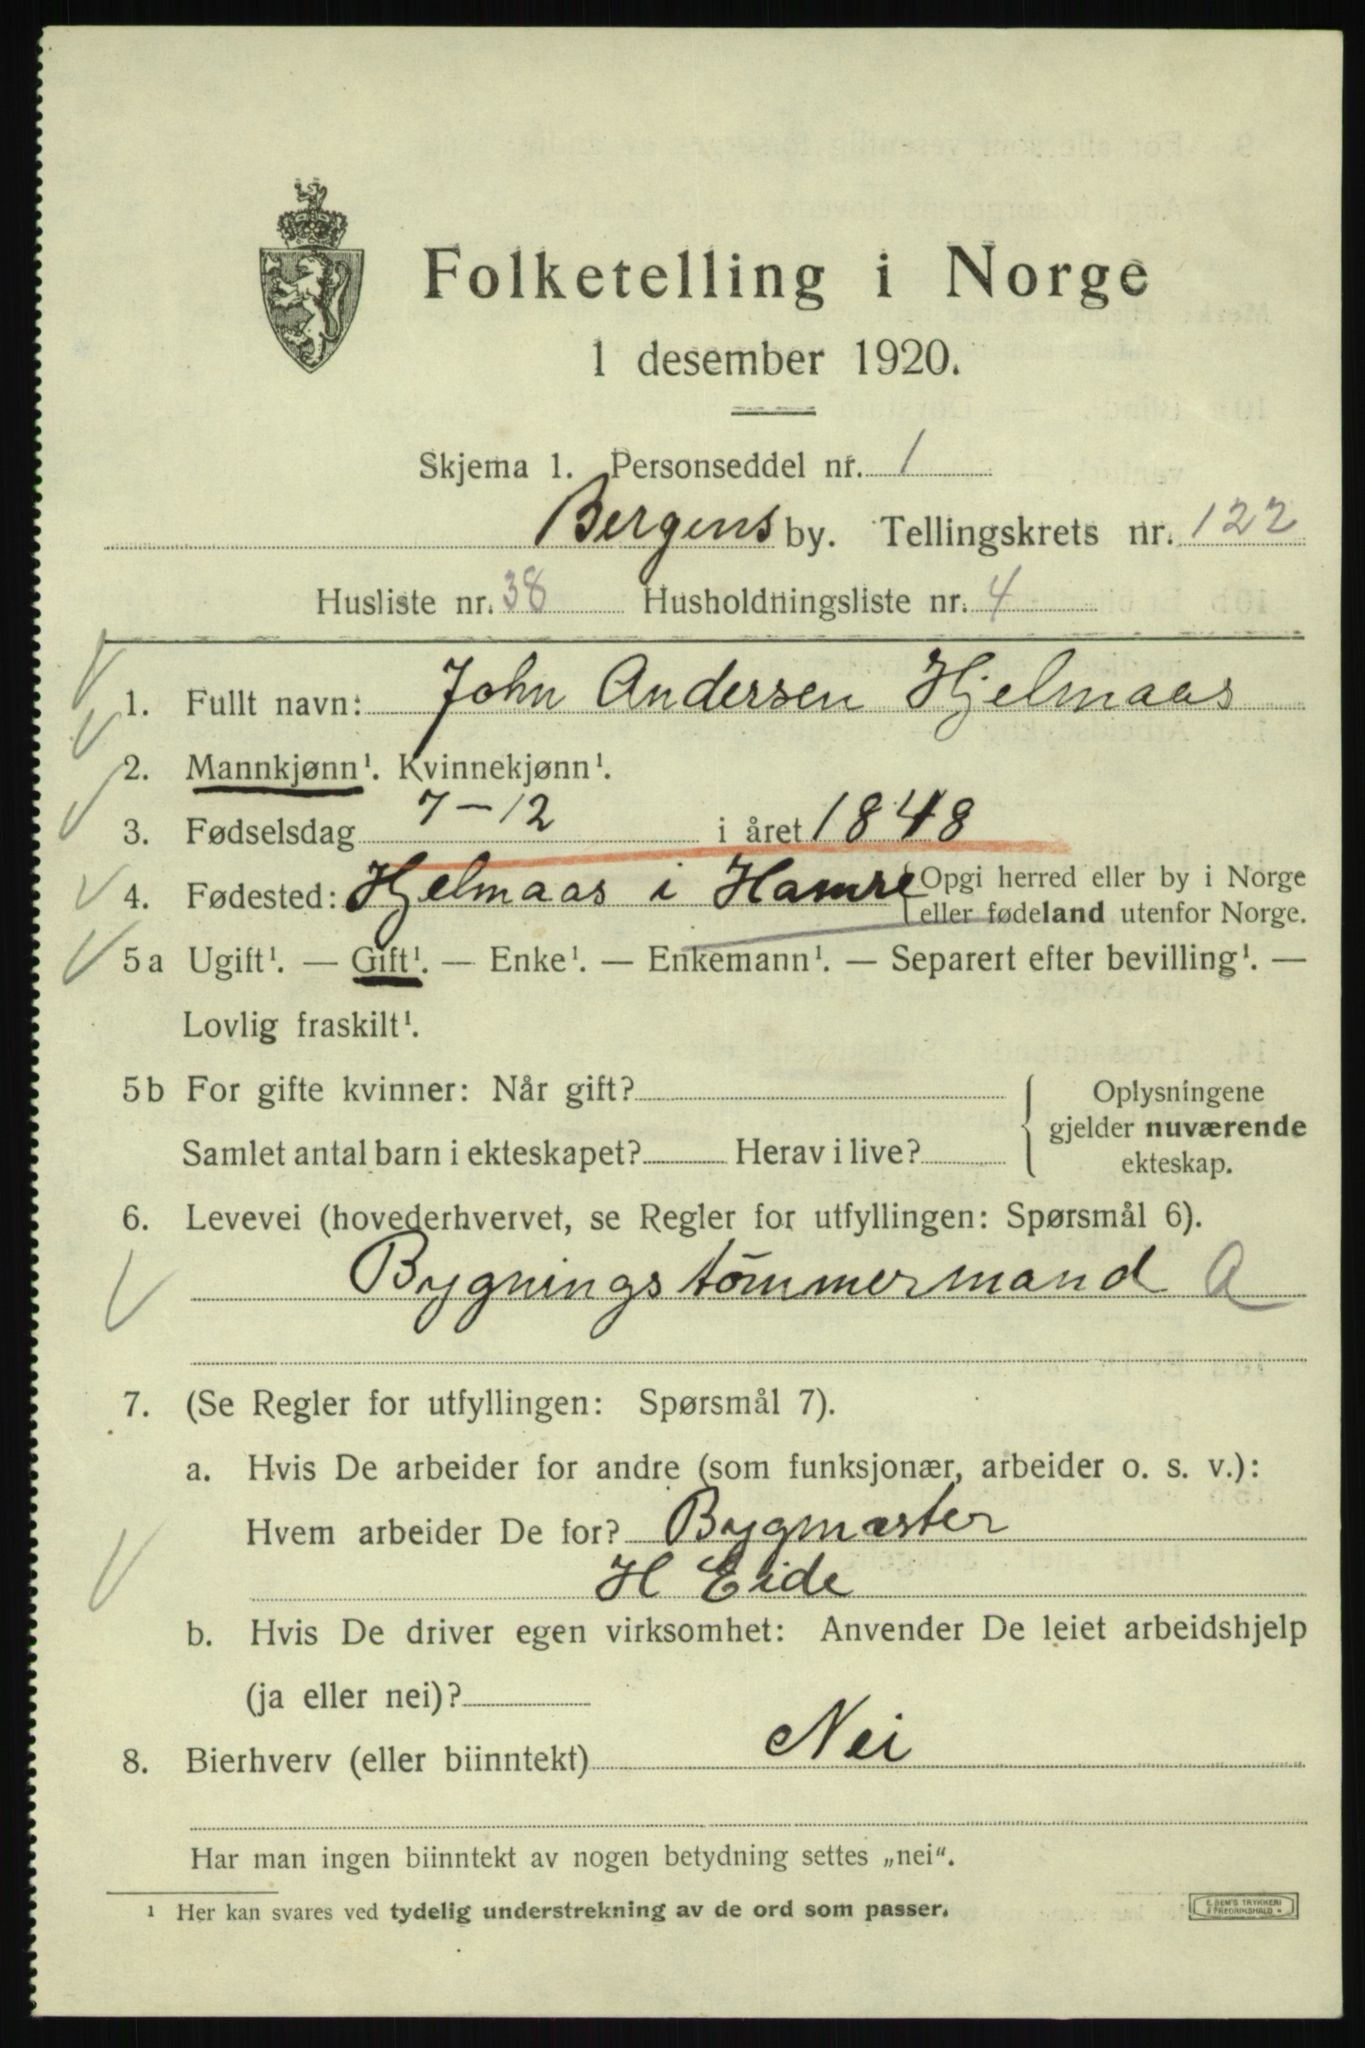 Folketelling i Norge
1 desember 1920.
Skjema 1. Personseddel nr. 1
Bergens by. Tellingskrets nr. 122
Husliste nr. 38 Husholdningsliste nr. 4
1. Fullt navn: John Andersen Hjelmaas
2. Mannkjønn¹. Kvinnekjønn¹.
3. Fødselsdag 7-12 i året 1848
4. Fødested: Hjelmaas i Hamre { Opgi herred eller by i Norge
eller fødeland utenfor Norge.
5a Ugift¹. — Gift¹. — Enke¹. — Enkemann¹. — Separert efter bevilling¹. —
Lovlig fraskilt¹.
5b For gifte kvinner: Når gift?
Samlet antal barn i ekteskapet? Herav i live?
{ Oplysningene
gjelder nuværende
ekteskap.
6. Levevei (hovederhvervet, se Regler for utfyllingen: Spørsmål 6).
Bygningstömmermand A
7. (Se Regler for utfyllingen: Spørsmål 7).
a. Hvis De arbeider for andre (som funksjonær, arbeider o. s. v.):
Hvem arbeider De for? Bygmæster
H Eide
b. Hvis De driver egen virksomhet: Anvender De leiet arbeidshjelp
(ja eller nei)?
8. Bierhverv (eller biinntekt) Nei
Har man ingen biinntekt av nogen betydning settes „nei“.
¹ Her kan svares ved tydelig understrekning av de ord som passer.
E. SEM'S TRYKKERI
FREDRIKSHALD